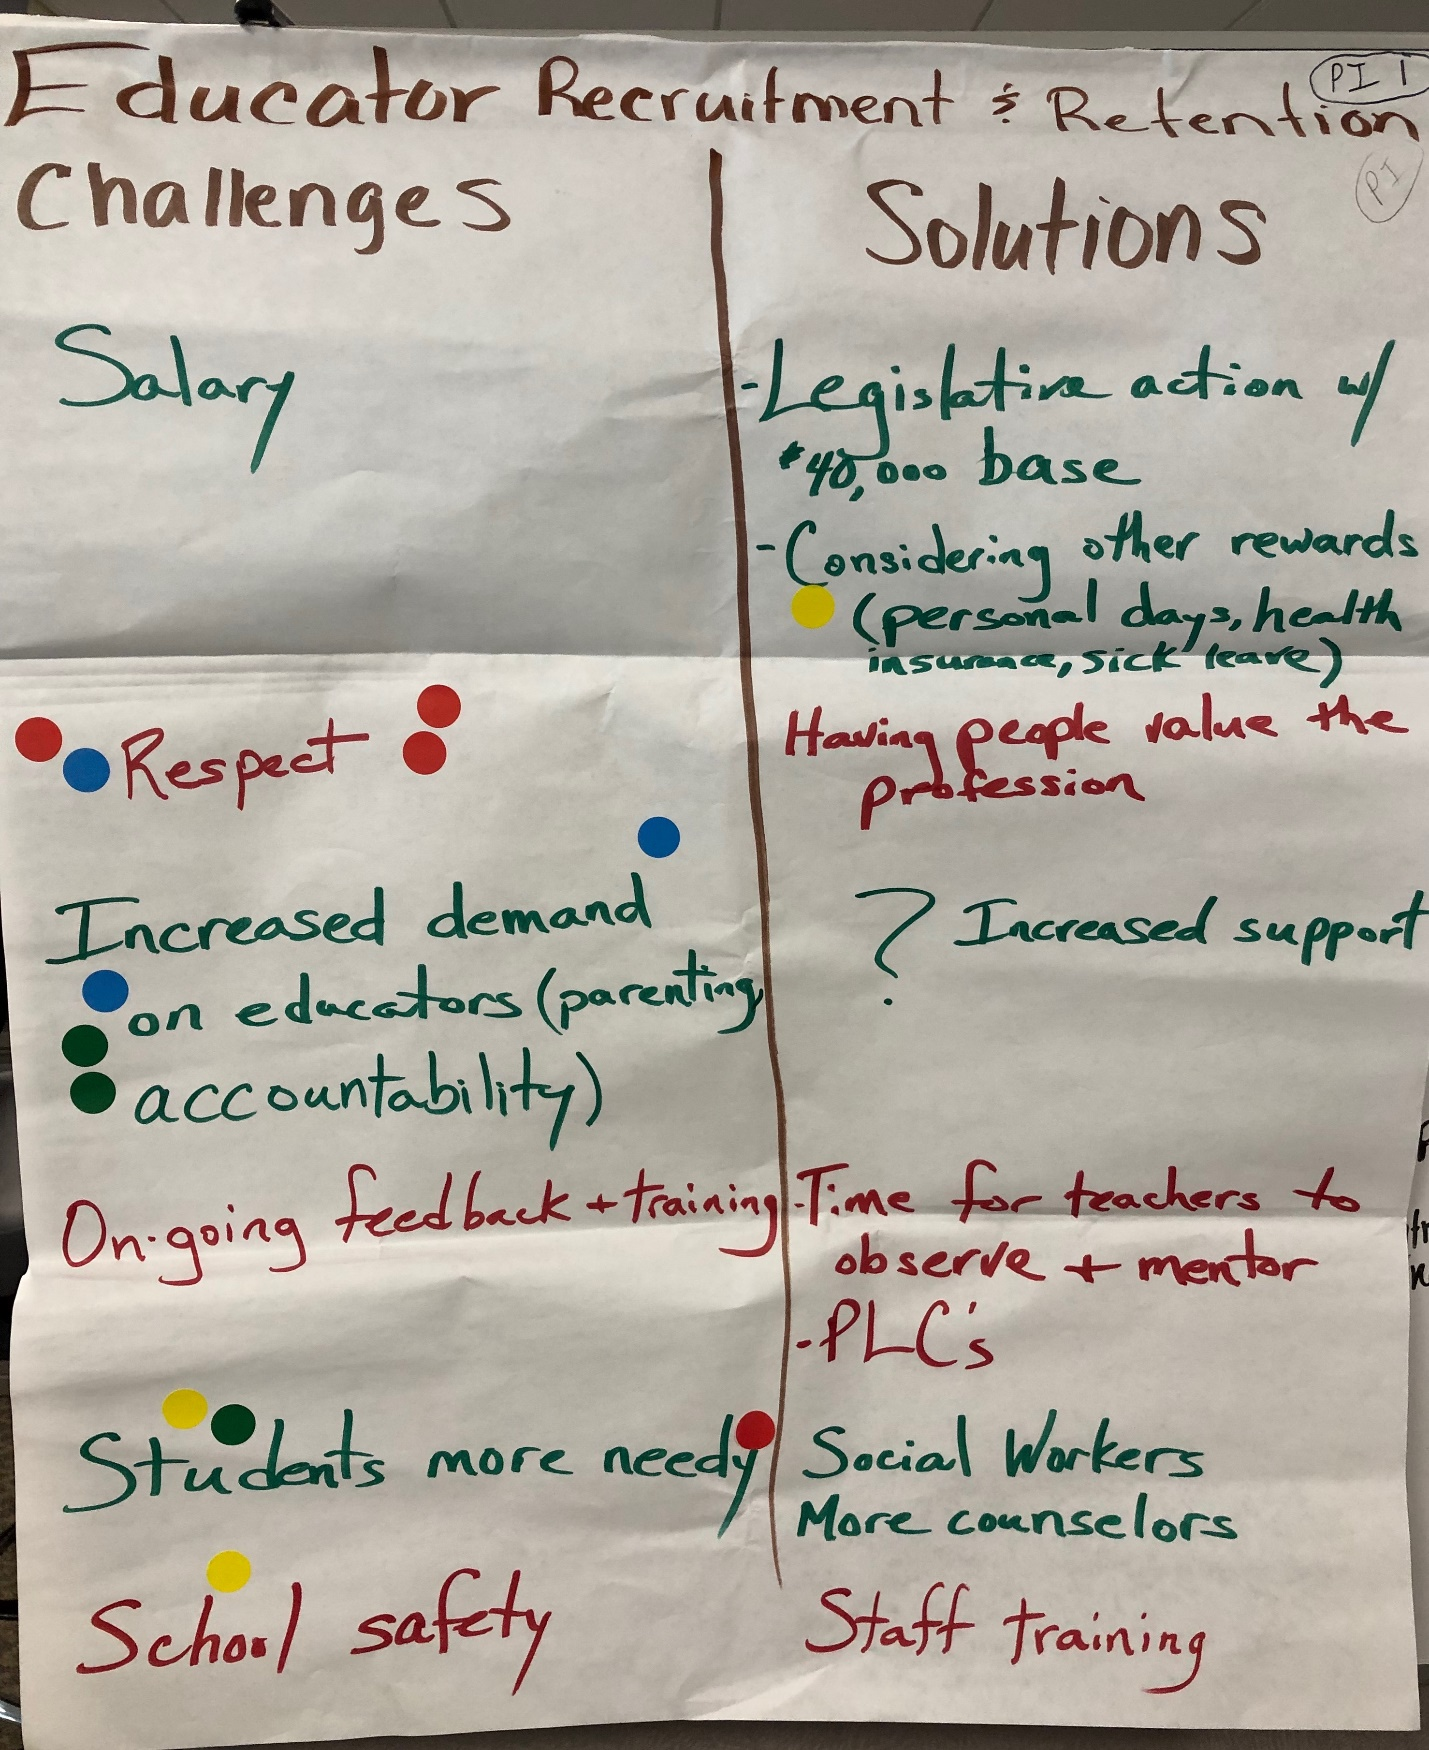 PI 1
Educator Recruitment & Retention
PI
Challenges
Solutions
Salary
-Legislative action w/
$40,000 base
-Considering other rewards
(personal days, health
insurance, sick leave)
Respect
Having people value the
profession
Increased demand
on educators (parenting,
accountability)
? Increased support
On-going feedback + training
-Time for teachers to
observe + mentor
-PLC's
Students more needy
Social Workers
More counselors
School safety
Staff training